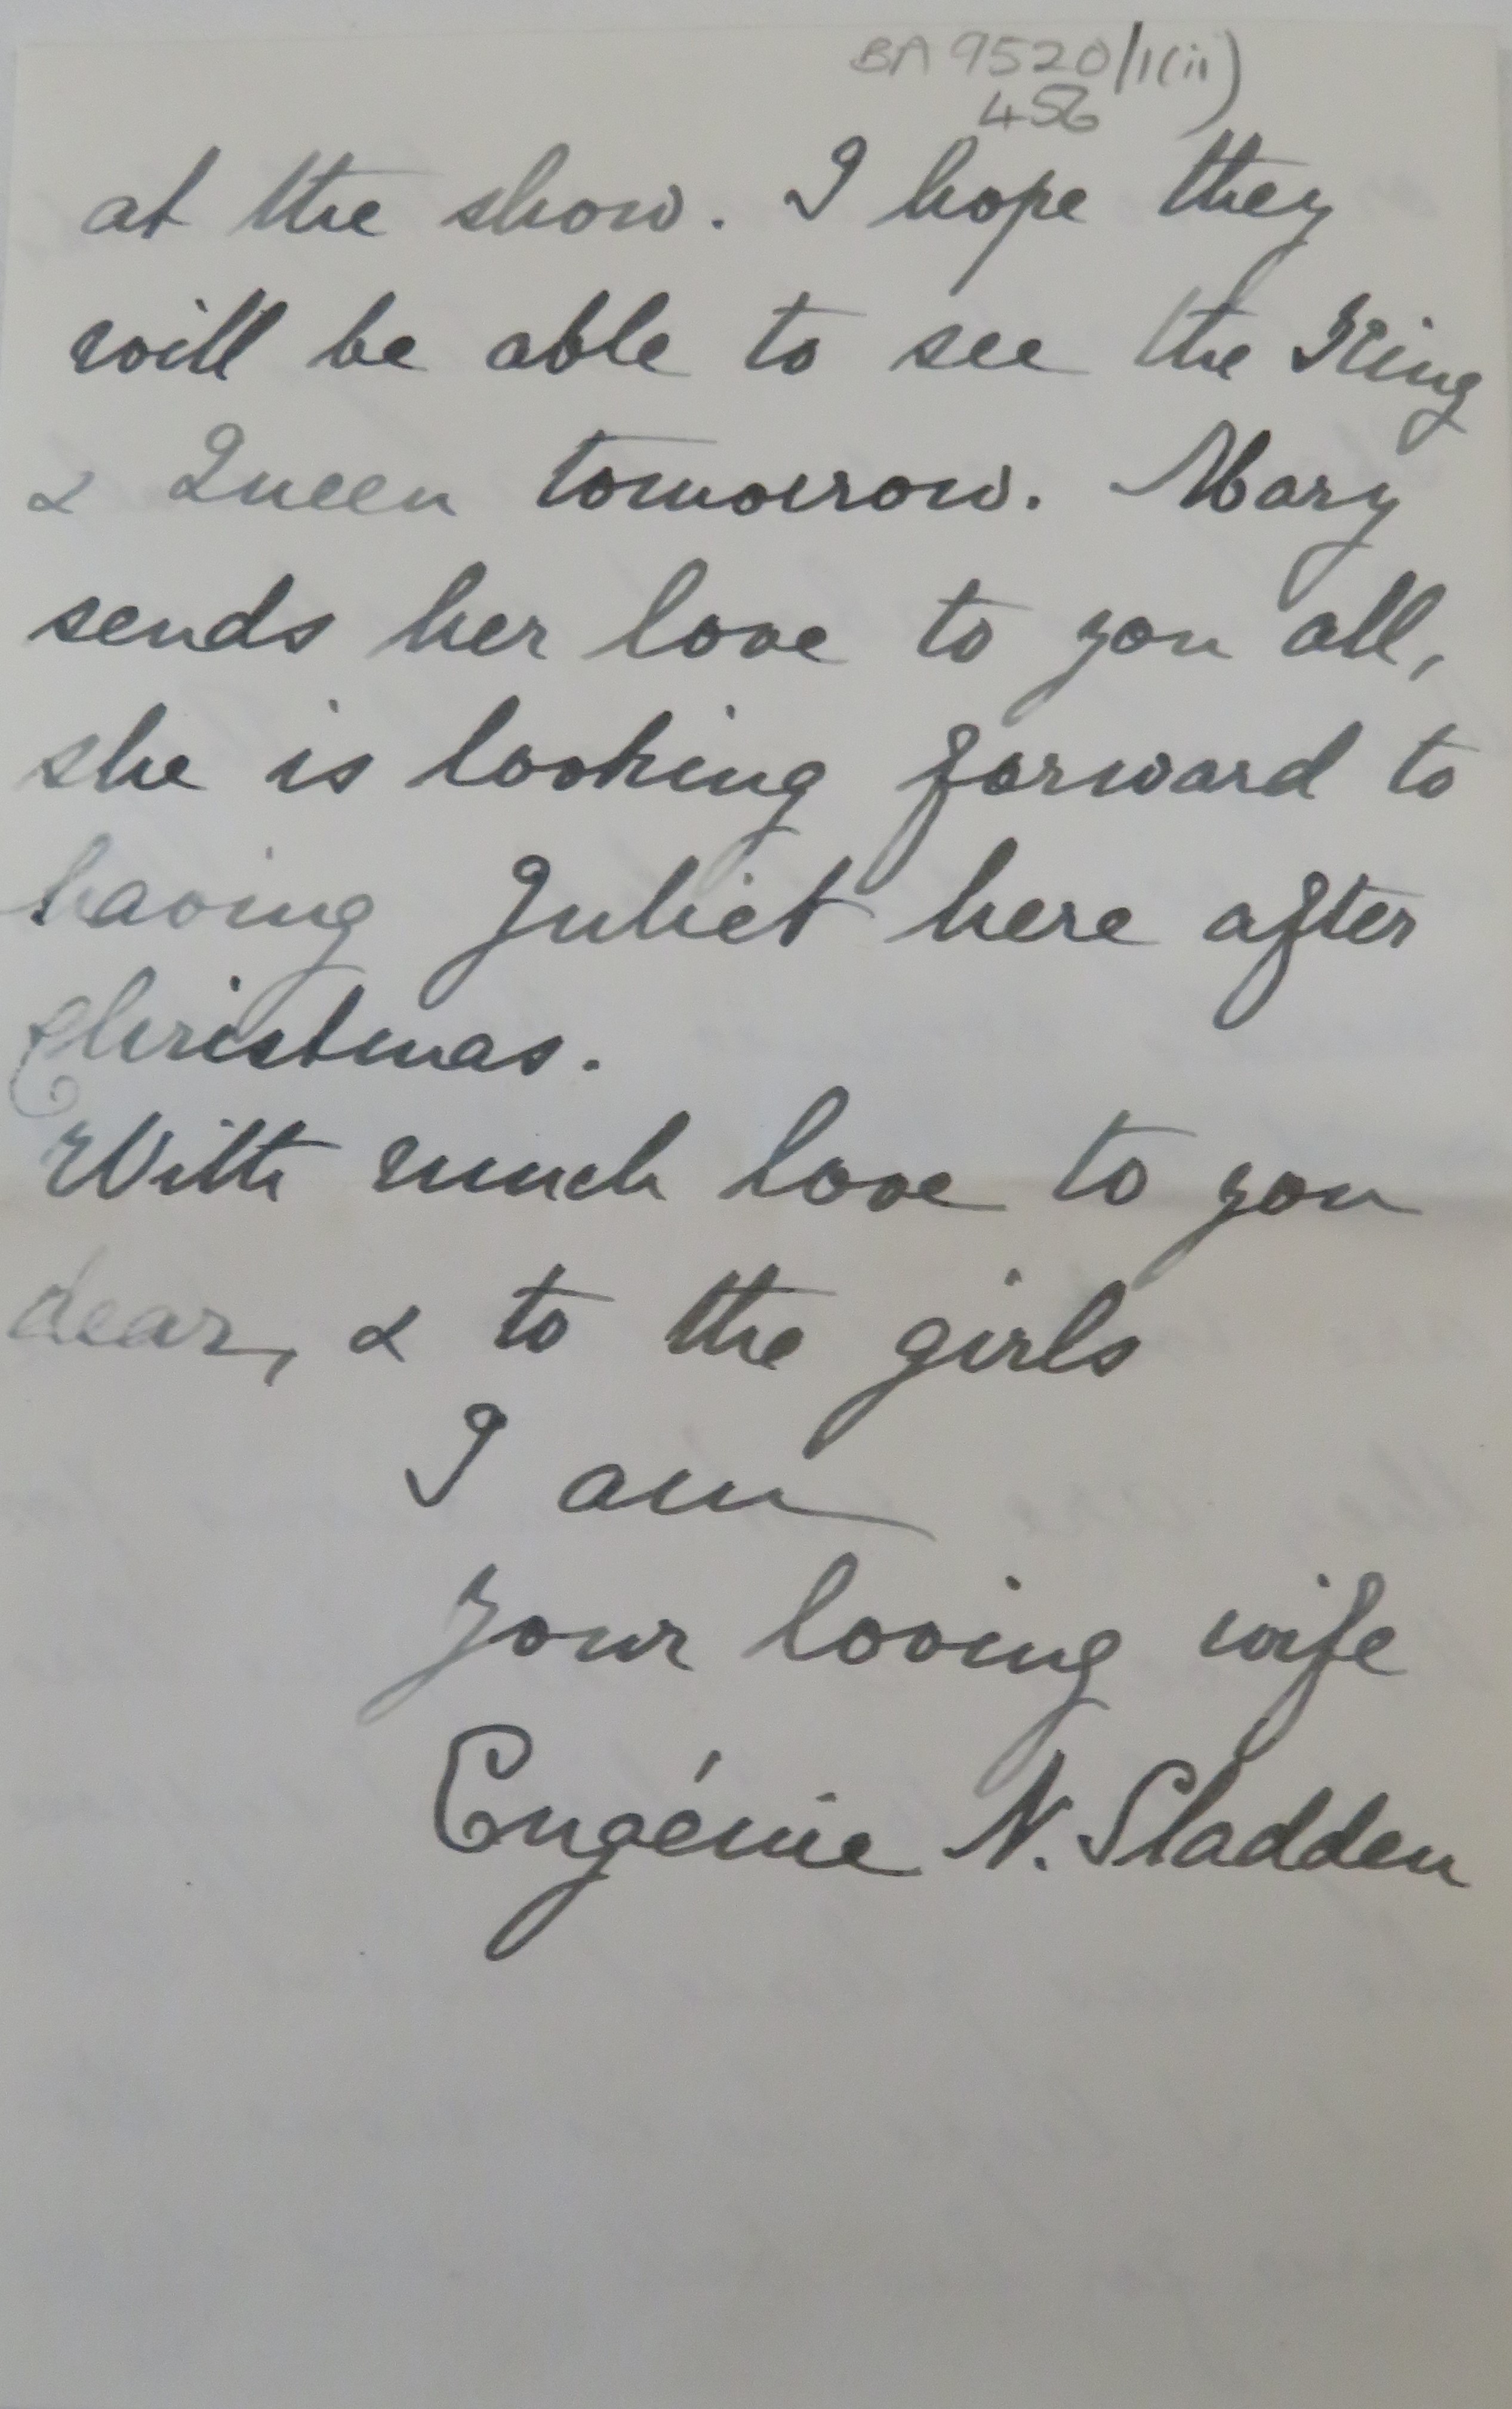 BA 9520/1(ii)
456
at the show. I hope they
will be able to see the King
& Queen tomorrow. Mary
sends her love to you all,
she is looking forward to
having Juliet here after
Christmas.
With much love to you
dear, & to the girls
I am
your loving wife
Eugénie N. Sladden